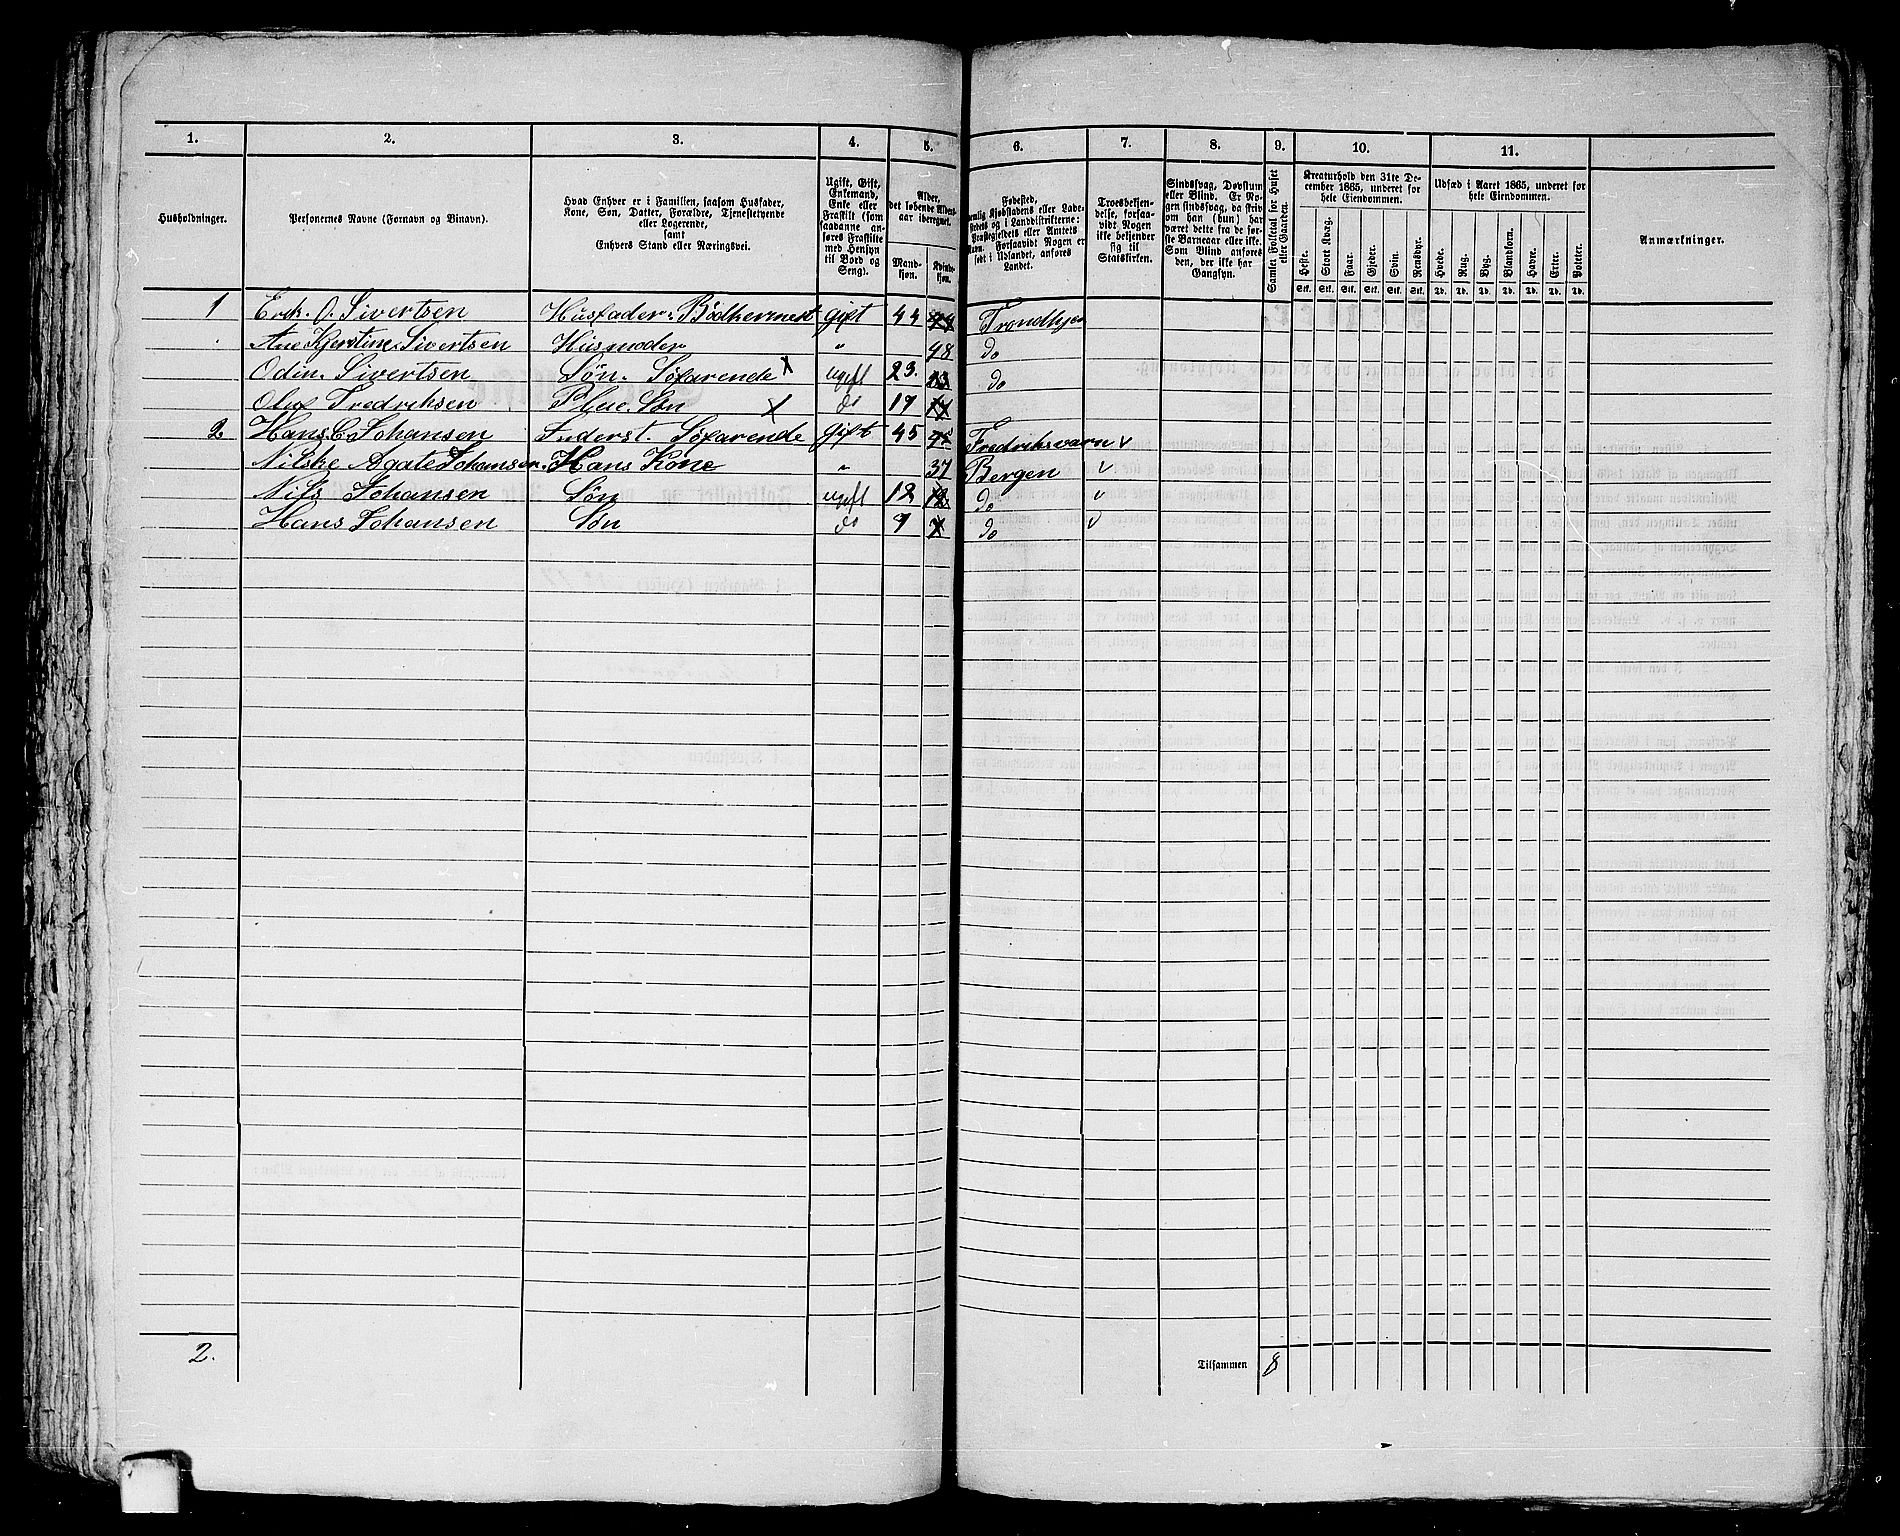 1. 2. 3. 4. 5. 6. 7. 8. 9. 10. 11.
Husholdninger.
Personernes Navne (Fornavn og Binavn).
Hvad Enhver er i Familien, saasom Husfader,
Kone, Søn, Datter, Forældre, Tjenestetyende
eller Logerende,
samt
Enhvers Stand eller Næringsvei.
Ugift, Gift,
Enkemand,
Enke eller
Fraskilt (som
saadanne an-
føres Fraskilte
med Hensyn
til Bord og
Seng).
Alder,
det løbende Alders-
aar iberegnet.
Mand-
kjøn.
Kvinde-
kjøn.
Fødested,
Forsaavidt Nogen er
født i Udlandet, anføres
Landet.
Troesbekjen-
delse, forsaa-
vidt Nogen
ikke bekjender
sig til
Statskirken.
Sindssvag, Døvstum
eller Blind. Er No-
gen sindssvag, da skriv
om han (hun) har
været dette fra de før-
ste Barneaar eller ikke.
Som Blind anføres
den, der ikke har
Gangsyn.
Samlet Folketal for Huset
eller Gaarden.
Kreaturhold den 31te De-
cember 1865, underet for
hele Eiendommen.
Heste. Stort Kvæg. Faar. Gjeder. Svin. Rensdyr.
Stk. Stk. Stk. Stk. Stk. Stk.
Udsæd i Aaret 1865, underet for
hele Eiendommen.
Hvede. Rug. Byg. Blandkorn. Havre. Erter. Poteter.
Td. Td. Td. Td. Td. Td. Td.
Anmærkninger.
1 Erik. O. Sivertsen Husfader. Bødkermest gift 44 Trondhjem
Ane Kjerstine Sivertsen Husmoder " 48 do
Odin. Sivertsen Søn. Søfarende X ugift 23. do
Oluf Fredriksen Pleie. Søn X do 17
2 Hans. C. Johansen Inderst. Søfarende gift 45 Fredriksværn v
Agate Johansen. Hans Kone " 37 Bergen v
Nils Johansen Søn ugift 12 do v
Hans Johansen Søn do 7 do v
2. Tilsammen 8